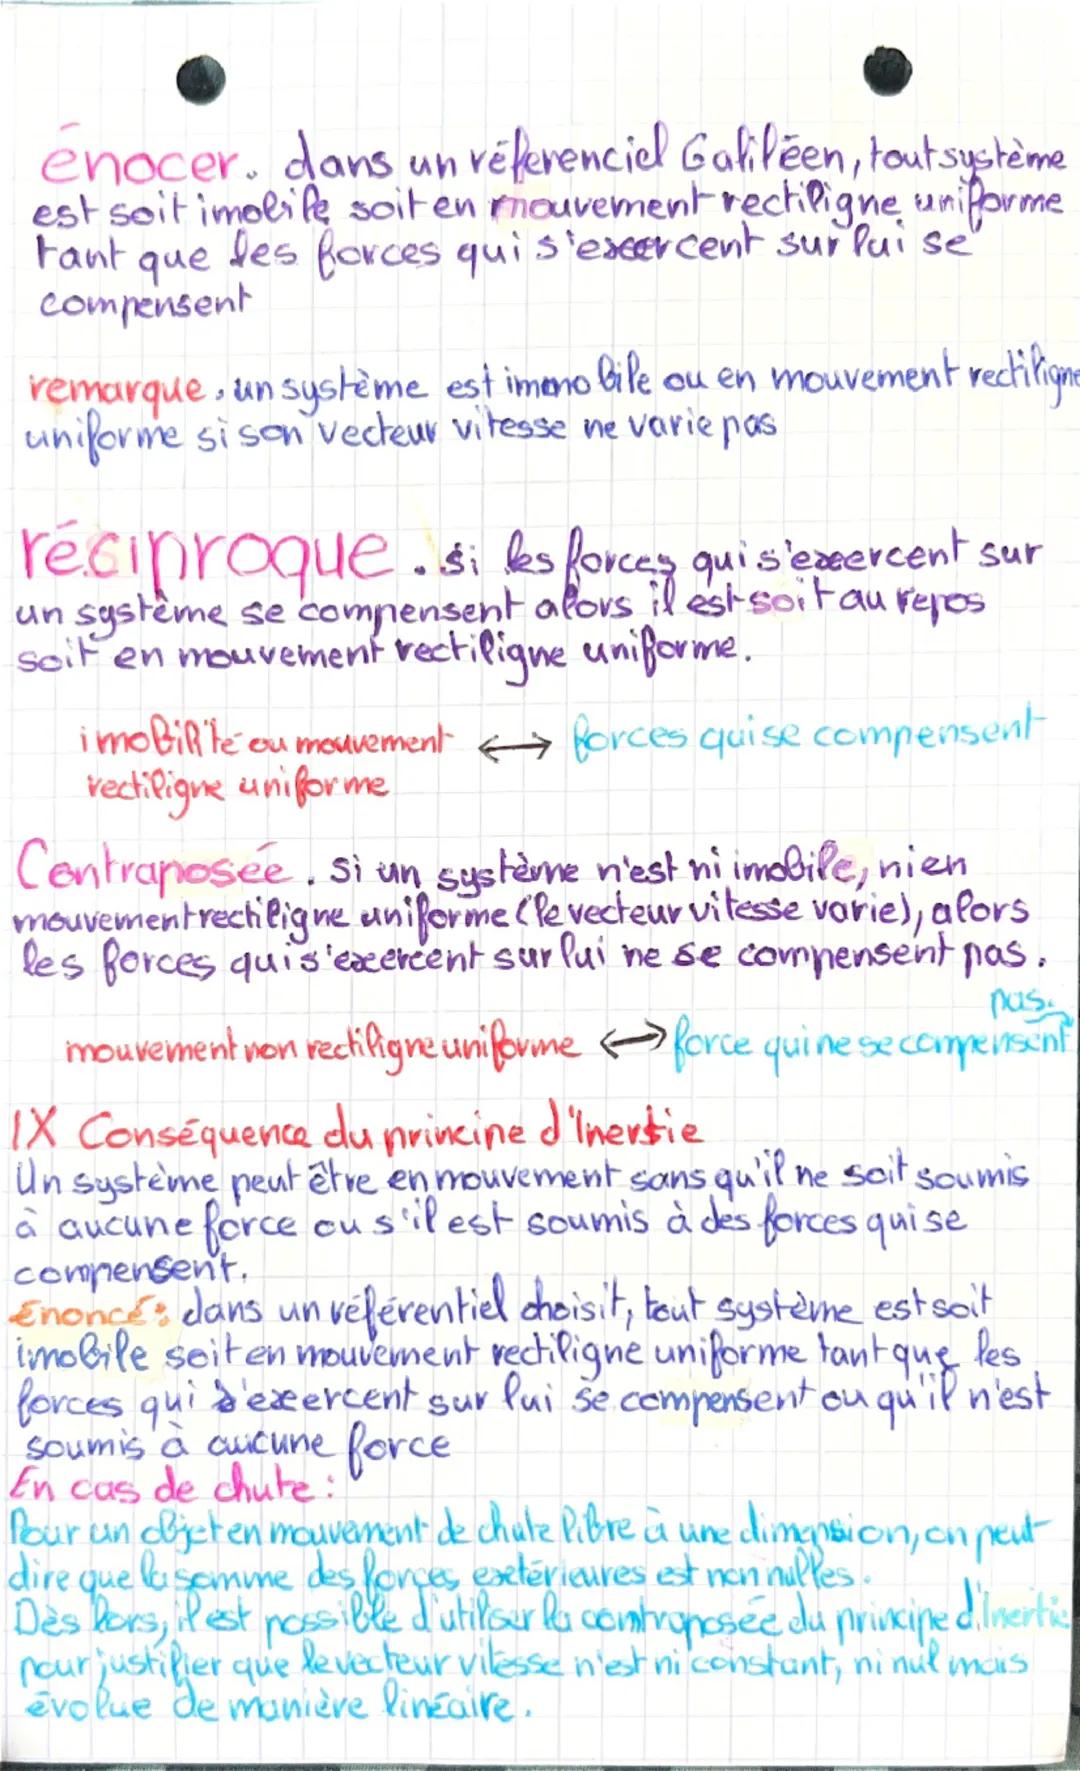 énocer. dans un réferenciel Galiléen, tout système
est soit imobile soit en mouvement rectiligne uniforme
tant que les forces qui s'exercent sur lui se
compensent
remarque. un système est immobile ou en mouvement rectiligne
uniforme si son vecteur vitesse ne varie pas
réciproque. si les forces qui s'exercent sur
un système se compensent alors il est soit au repos
soit en mouvement rectiligne uniforme.
imobilité ou mouvement ↔ forces qui se compensent
rectiligne uniforme
Contraposée. Si un système n'est ni imobile, ni en
mouvement rectiligne uniforme (le vecteur vitesse varie), alors
les forces qui s'exercent sur lui ne se compensent pas.
pas.
mouvement non rectiligne uniforme ↔ force qui ne se compensent
IX Conséquence du principe d'Inertie
Un système peut être en mouvement sans qu'il ne soit soumis
à aucune force ou s'il est soumis à des forces qui se
compensent.
Énoncé: dans un référentiel choisit, tout système est soit
imobile soit en mouvement rectiligne uniforme tant que les
forces qui s'exercent sur lui se compensent ou qu'il n'est
soumis à aucune force
En cas de chute:
Pour un objet en mouvement de chute libre à une dimension, on peut
dire que la somme des forces extérieures est non nulles.
Dès lors, il est possible d'utiliser la contraposée du principe d'Inertie
pour justifier que le vecteur vitesse n'est ni constant, ni nul mais
évolue de manière linéaire.